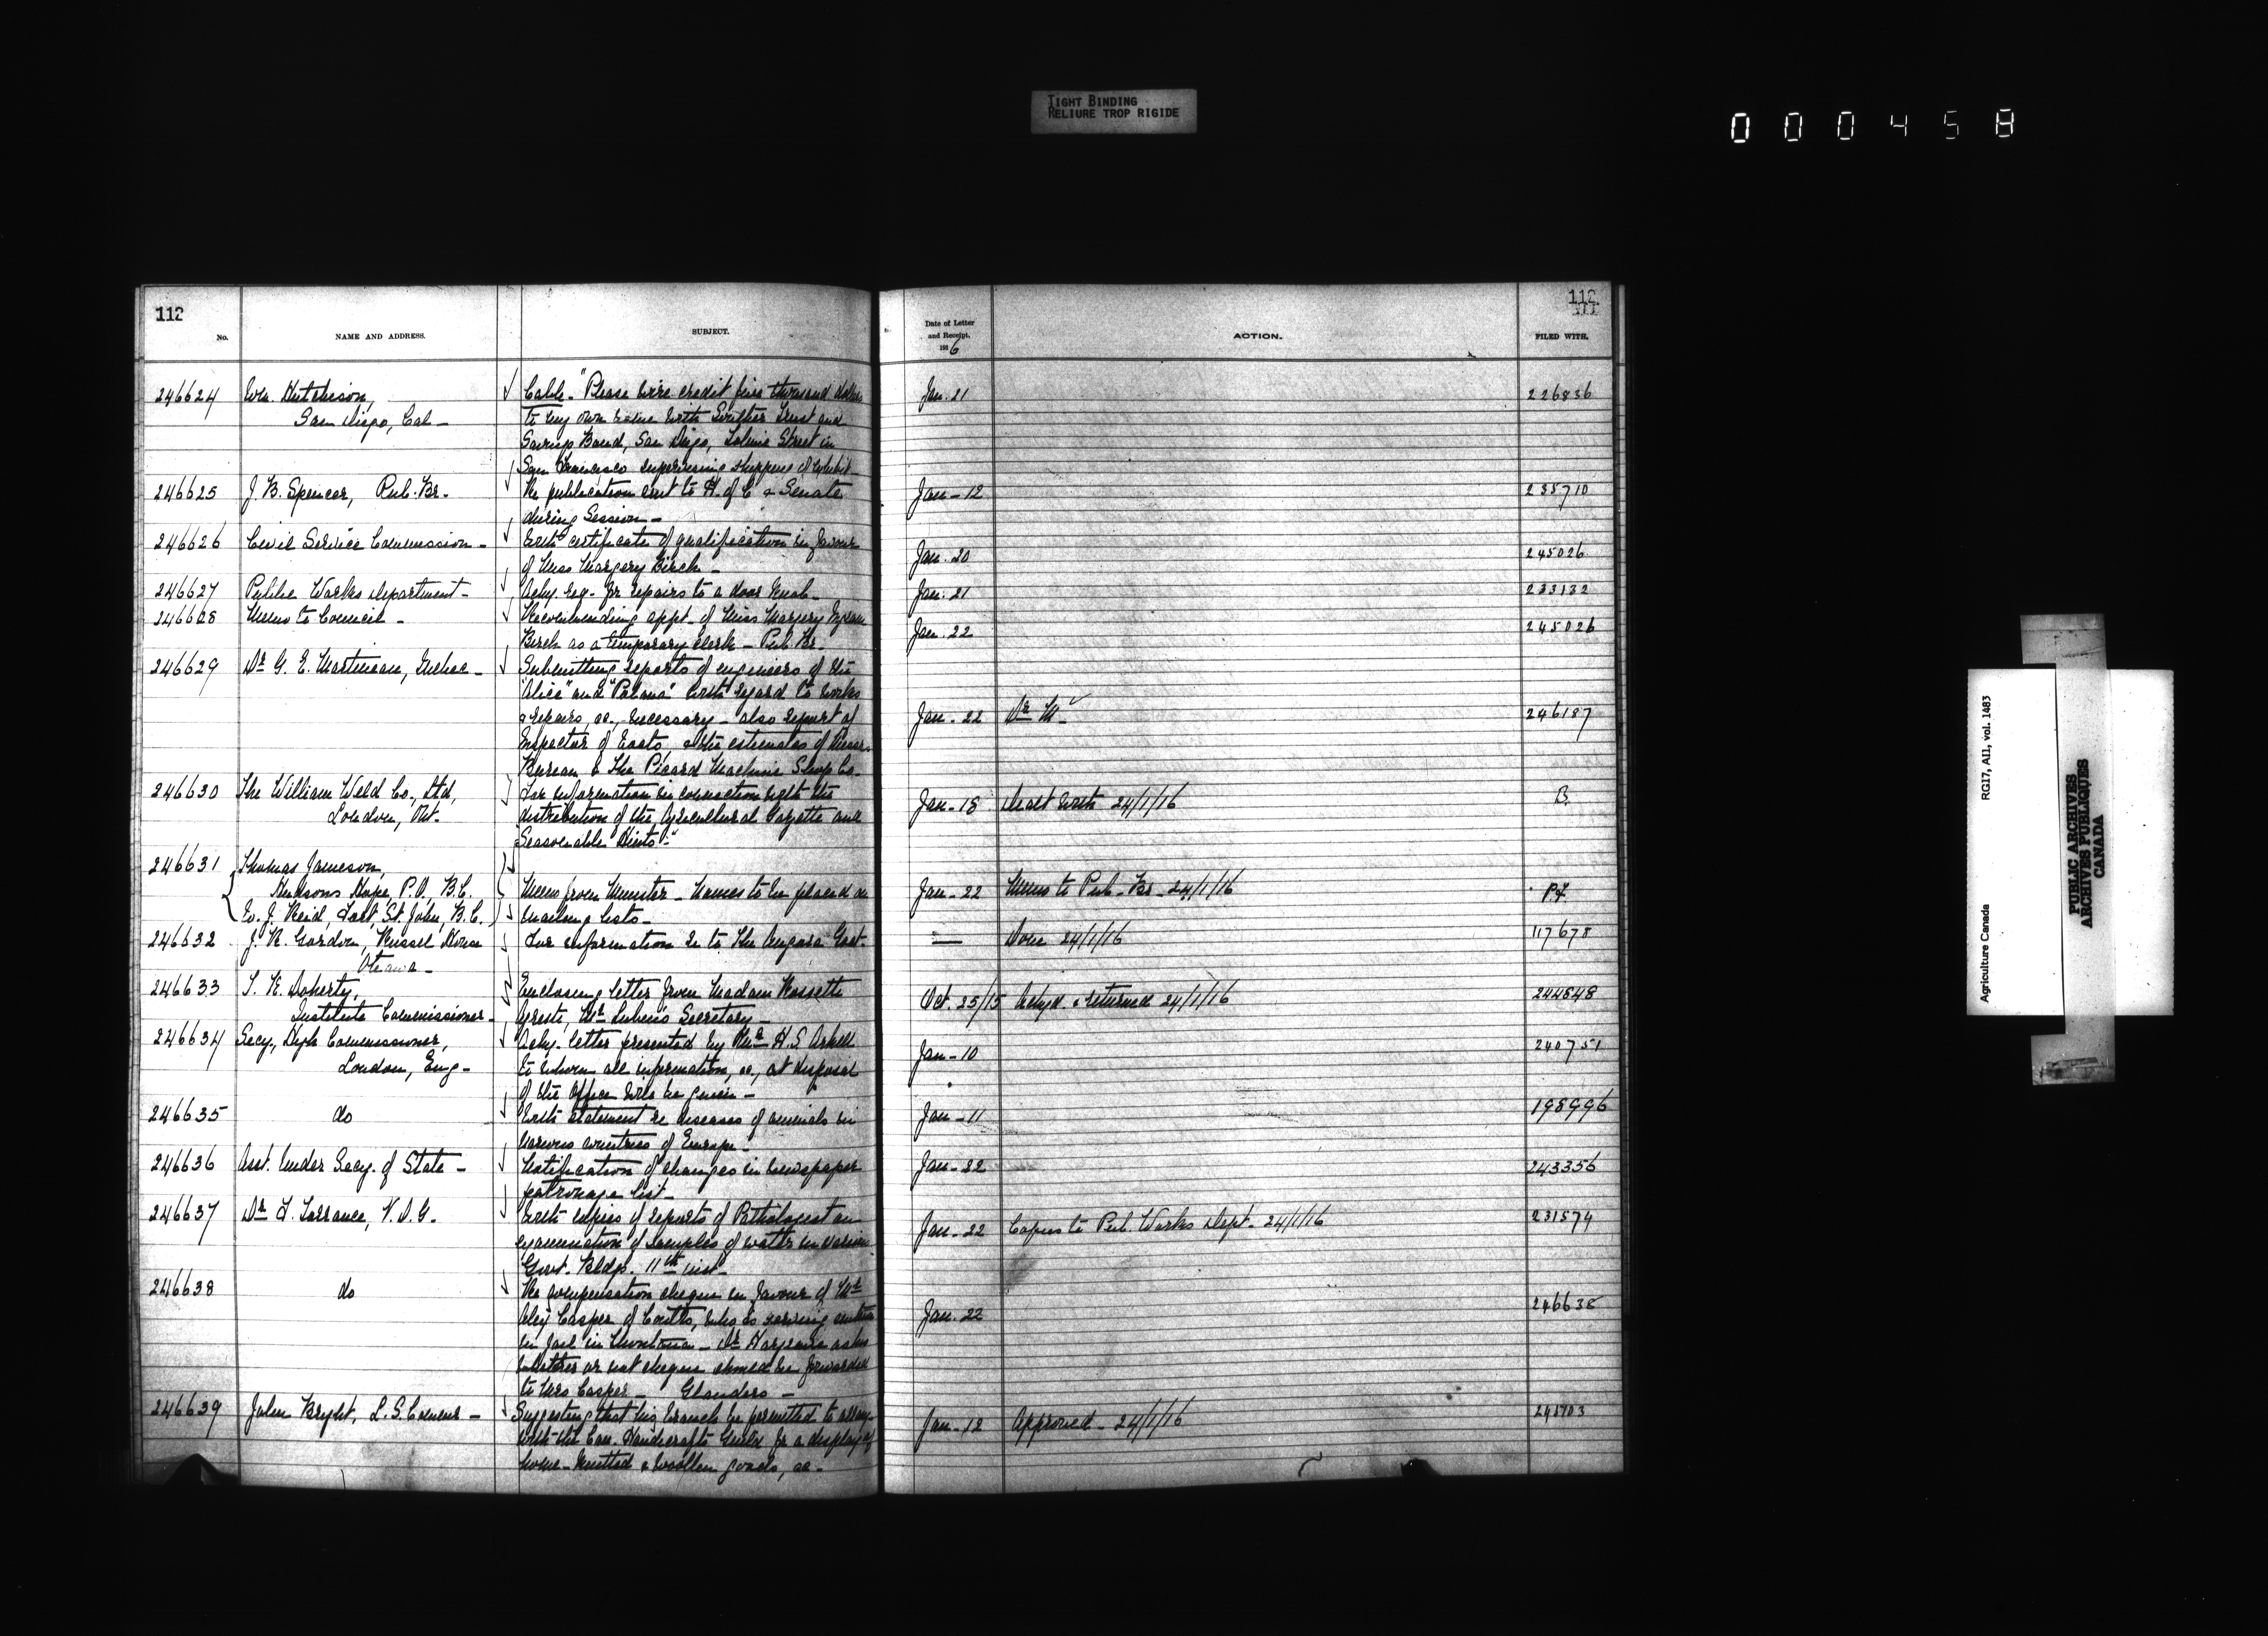 TIGHT BINDING
RELIURE TROP RIGIDE
000458
112
No.
NAME AND ADDRESS.
SUBJECT.
Date of Letter
and Receipt.
1916
ACTION.
112
111
FILED WITH.
246624 Wm. Hutchison, Cable - "Please wire credit five thousand dollars Jan. 21 226836
San Diego, Cal - to my own name with Souther Trust and
Savings Bank, San Diego, Street in
San Francisco supervising shipping of exhibit -
246625 J. B. Spencer, Pub. Br. Re publication sent to H. of C. & Senate Jan - 12 235710
during Session -
246626 Civil Service Commission - With certificate of qualification in favour Jan. 20 245026
of Miss Margery Birch -
246627 Public Works Department - Ackg. req. for repairs to a door knob - Jan. 21 233132
246628 Memo to Council - Recommending appt. of Miss Margery Jan. 22 245026
Birch as a temporary clerk - Pub. Br.
246629 Dr G. E. Martineau, Quebec - Submitting reports of engineers of the
"Alice" and "Polana" with regard to works
& repairs, &c., necessary - also report of Jan - 22 Dr M - 246187
Inspector of boats, & the estimates of Messrs
Bureau & The Picard Machine Shop Co -
246630 The William Weld Co., Ltd, For information in connection with the
London, Ont. distribution of the Agricultural Gazette and Jan - 18 Dealt with 24/1/16 B.
Seasonable Hints" -
246631 Thomas Jameson,
Hudsons Hope, P.O, B.C. Memo from Minister - names to be placed on Jan - 22 Memo to Pub - Br - 24/1/16 P.F.
W. J. Reid, Fort St. John, B.C. mailing lists -
246632 J. R. Gordon, Russel House For information re to The Angora Goat - — Done 24/1/16 117678
Ottawa -
246633 T. K. Doherty, Enclosing letter from Madam Rossette Oct. 25/15 Ackgd. & returned 24/1/16 244848
Institute Commissioner - Agresti, Mr Lubin's Secretary -
246634 Secy., High Commissioner, Ackg. letter presented by Mr H. S. Arkell Jan - 10 240751
London, Eng - to whom all information, &c., at disposal
of the Office will be given -
246635 do With statement re diseases of animals in Jan - 11 198996
various countries of Europe -
246636 Asst. Under Secy. of State - Notification of changes in newspaper Jan - 22 243356
patronage list -
246637 Dr F. Torrance, V. D. G. With copies of reports of Pathologist on Jan - 22 Copies to Pub Works Dept. 24/1/16 231574
examination of samples of water in various
Govt. Bldgs. 11th inst -
246638 do Re compensation cheque in favour of Mr
Casper of Coutts, who is serving sentence Jan. 22 246638
in jail in Montana - Dr Hargrave asks
whether or not cheque should be forwarded
to Mrs Casper - Glanders -
246639 John Bright, L. S. Commr - Suggesting that his branch be permitted to arrange Jan - 12 Approved - 24/1/16
with the Can. Handicrafts Guild for a display of
home - knitted & woollen goods, &c -
Agriculture Canada RG17, AII, vol. 1483
PUBLIC ARCHIVES
ARCHIVES PUBLIQUES
CANADA